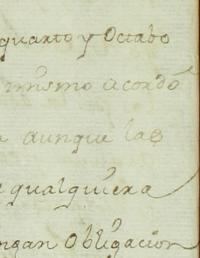 quarto y Octabo
mismo acordó
aunque las
qualquiera
ngan Obligacion